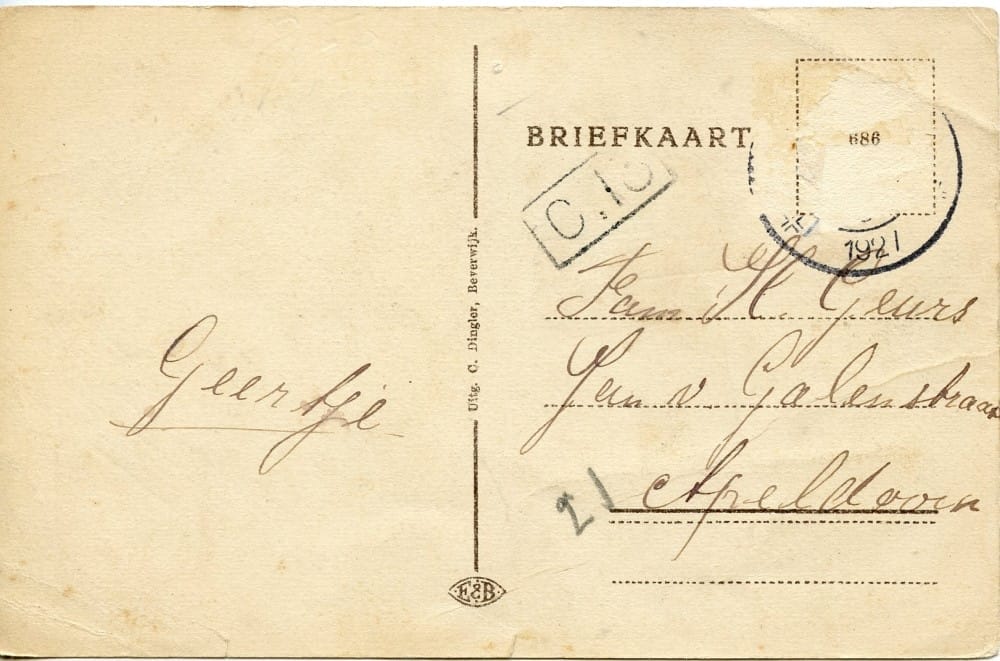 BRIEFKAART
686
C.13
1921
Fam. H. Geurs
Jan v. Galenstraat
Apeldoorn
21
Geertje
Uitg. C. Dingler, Beverwijk.
E&B